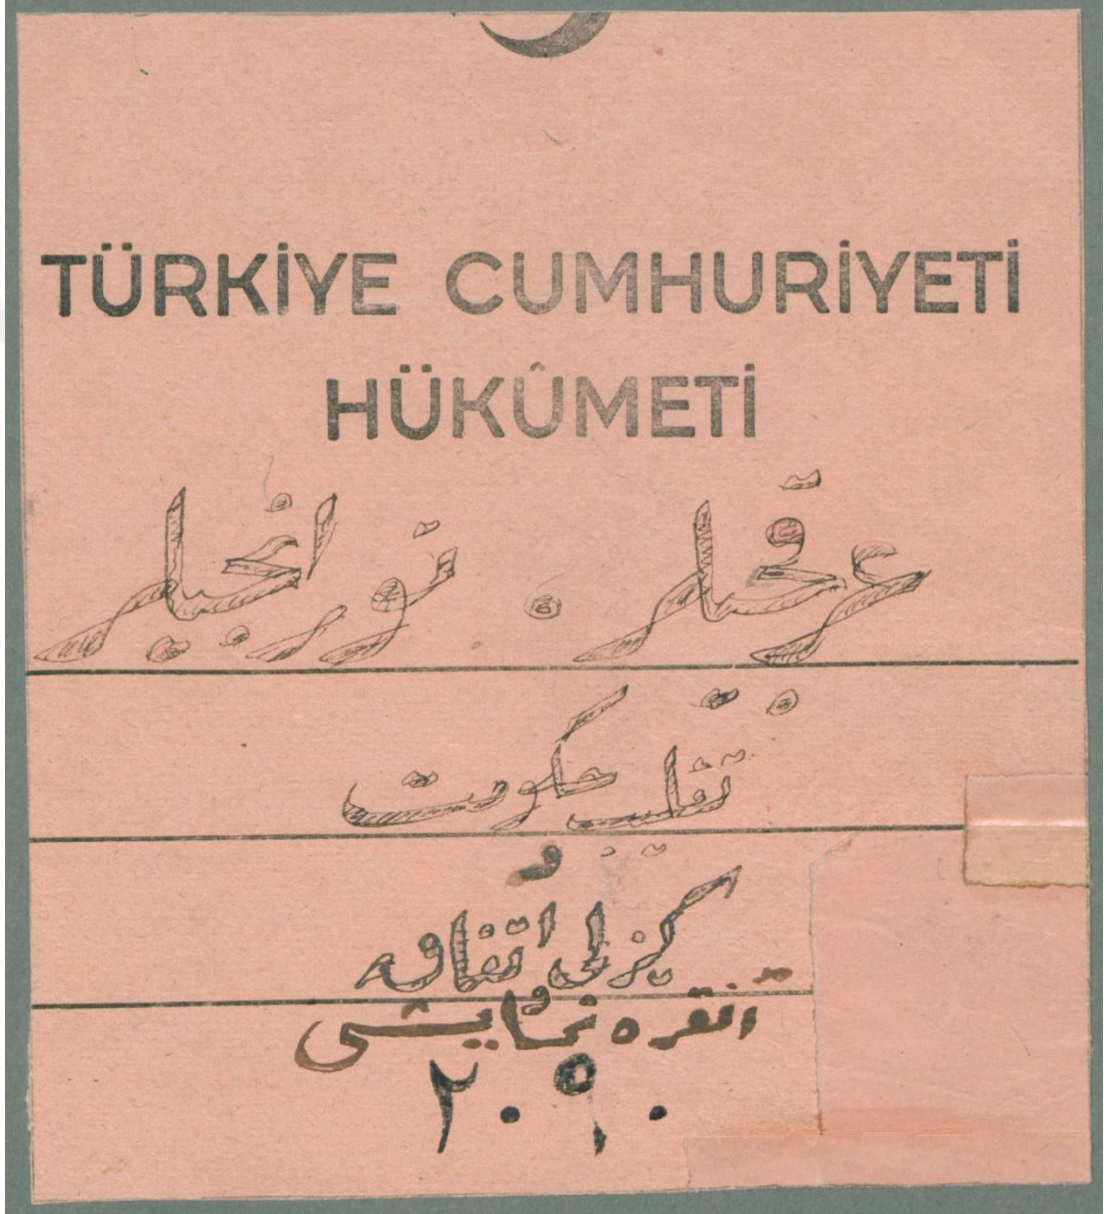 TÜRKİYE CUMHURİYETİ
HÜKÛMETİ
عرقجلر . تورانجيلر
تقليب حكومت
كزلى اتفاق
انقره نمايشى
٢٠٩٠